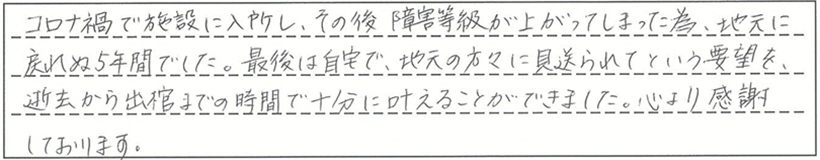 コロナ禍で施設に入所し、その後 障害等級が上がってしまった為、地元に
戻れぬ5年間でした。最後は自宅で、地元の方々に見送られてという要望を、
逝去から出棺までの時間で十分に叶えることができました。心より感謝
しております。